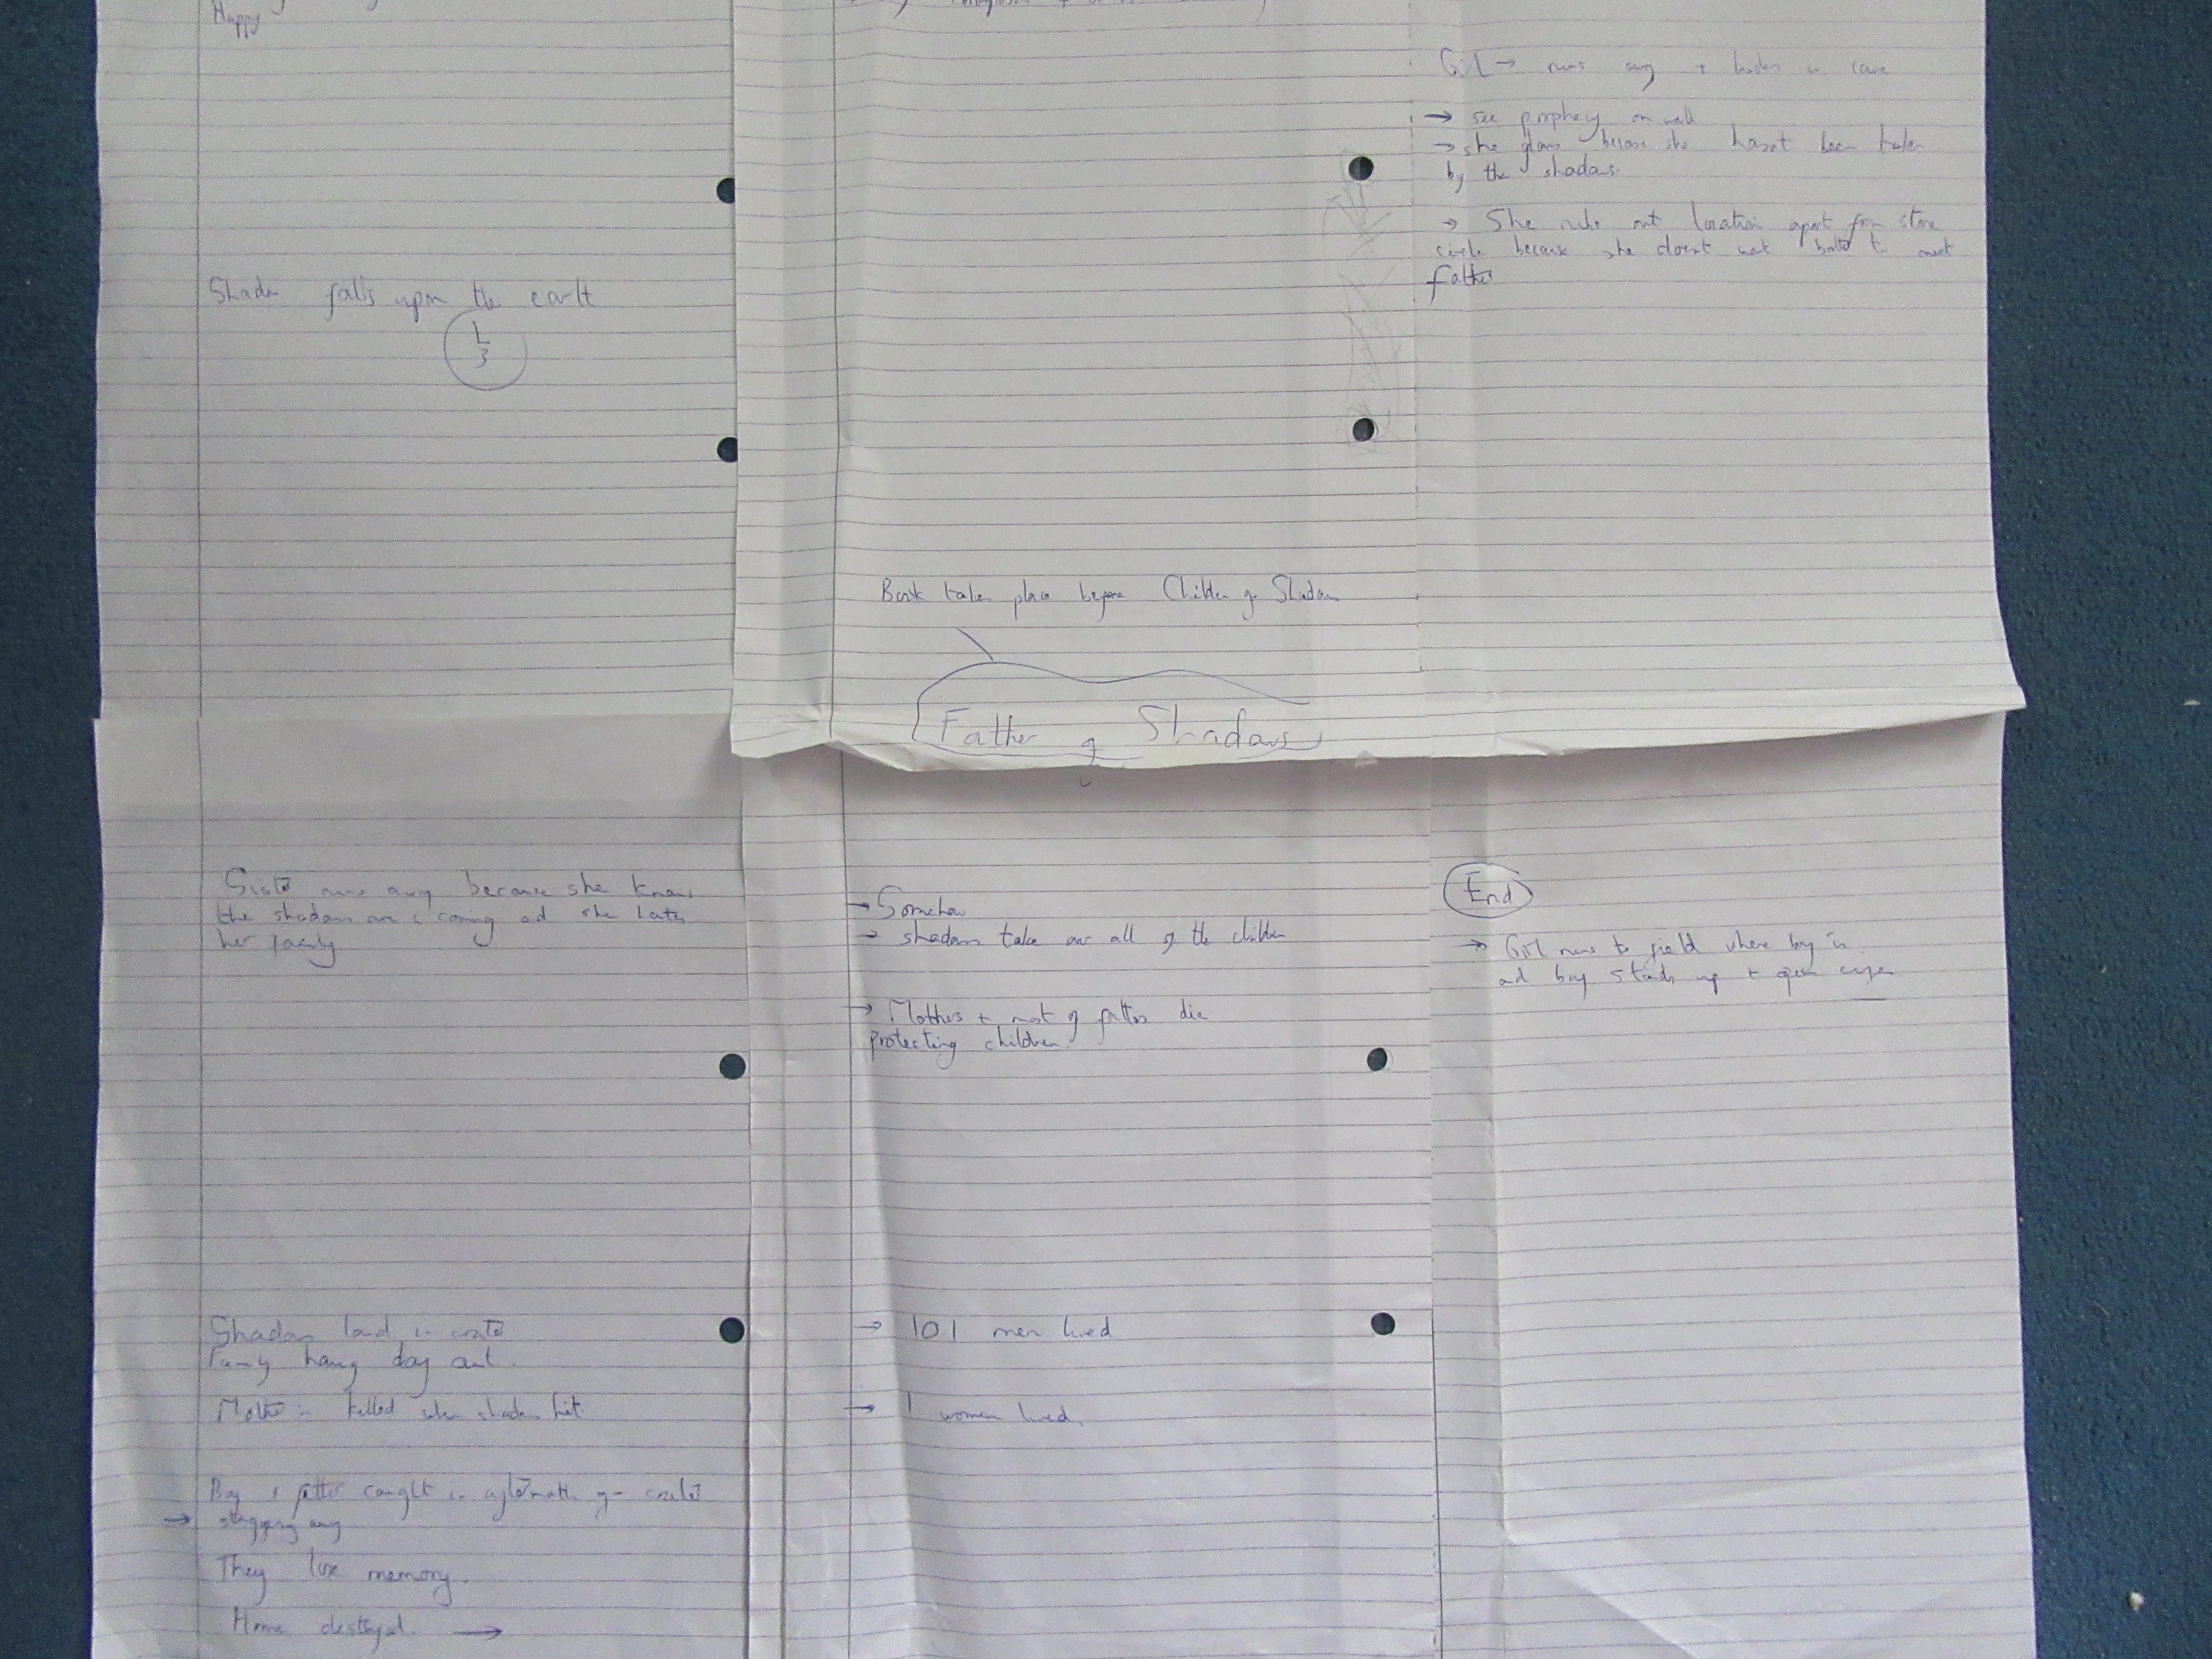 Happy
Shadow falls upon the earth
1
3
Girl → runs away + hides in cave
→ see prophecy on wall
→ she glows because she hasnt been taken
by the shadows
→ She rubs out location apart from stone
circle because she doesnt want to meet
father
Book takes place before Children of Shadows
Father of Shadows
Sister runs away because she knows
the shadows are coming and she hates
her family
Shadows land in crater
Family having day out.
Mother is killed when shadows hit.
Boy + father caught in aftermath of crater
→
They lose memory.
Home destroyed. →
→ Somehow
→ shadows take over all of the children
→ Mothers + most of fathers die
protecting children.
→ 101 men lived
→ 1 women lived.
End
→ Girl runs to field where boy is
and boy stands up + opens eyes